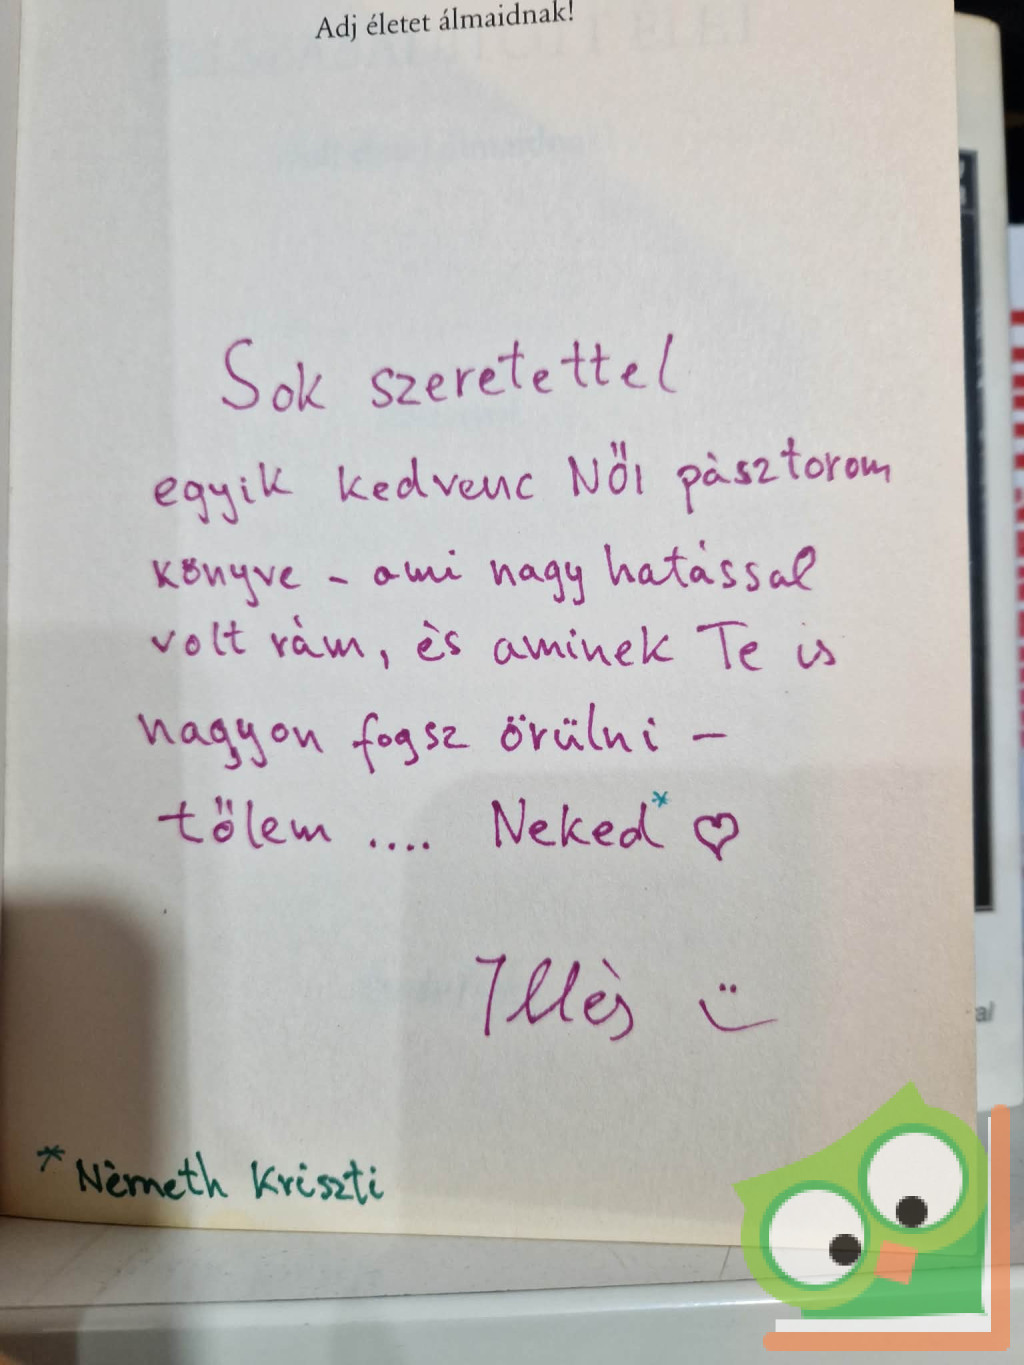 Adj életet álmaidnak!
Sok szeretettel
egyik kedvenc Női pàsztorom
könyve - ami nagy hatással
volt ràm, ès aminek Te is
nagyon fogsz örülni -
től​em .... Neked* ♡
Illès
* Nèmeth Kriszti